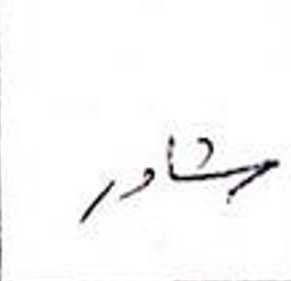 پشاور